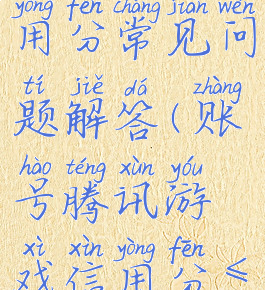 yòng fēn cháng jiàn wèn
用分常见问
tí jiě dá zhàng
题解答(账
hào téng xùn yóu
号腾讯游
xì xìn yòng fēn
戏信用分≤